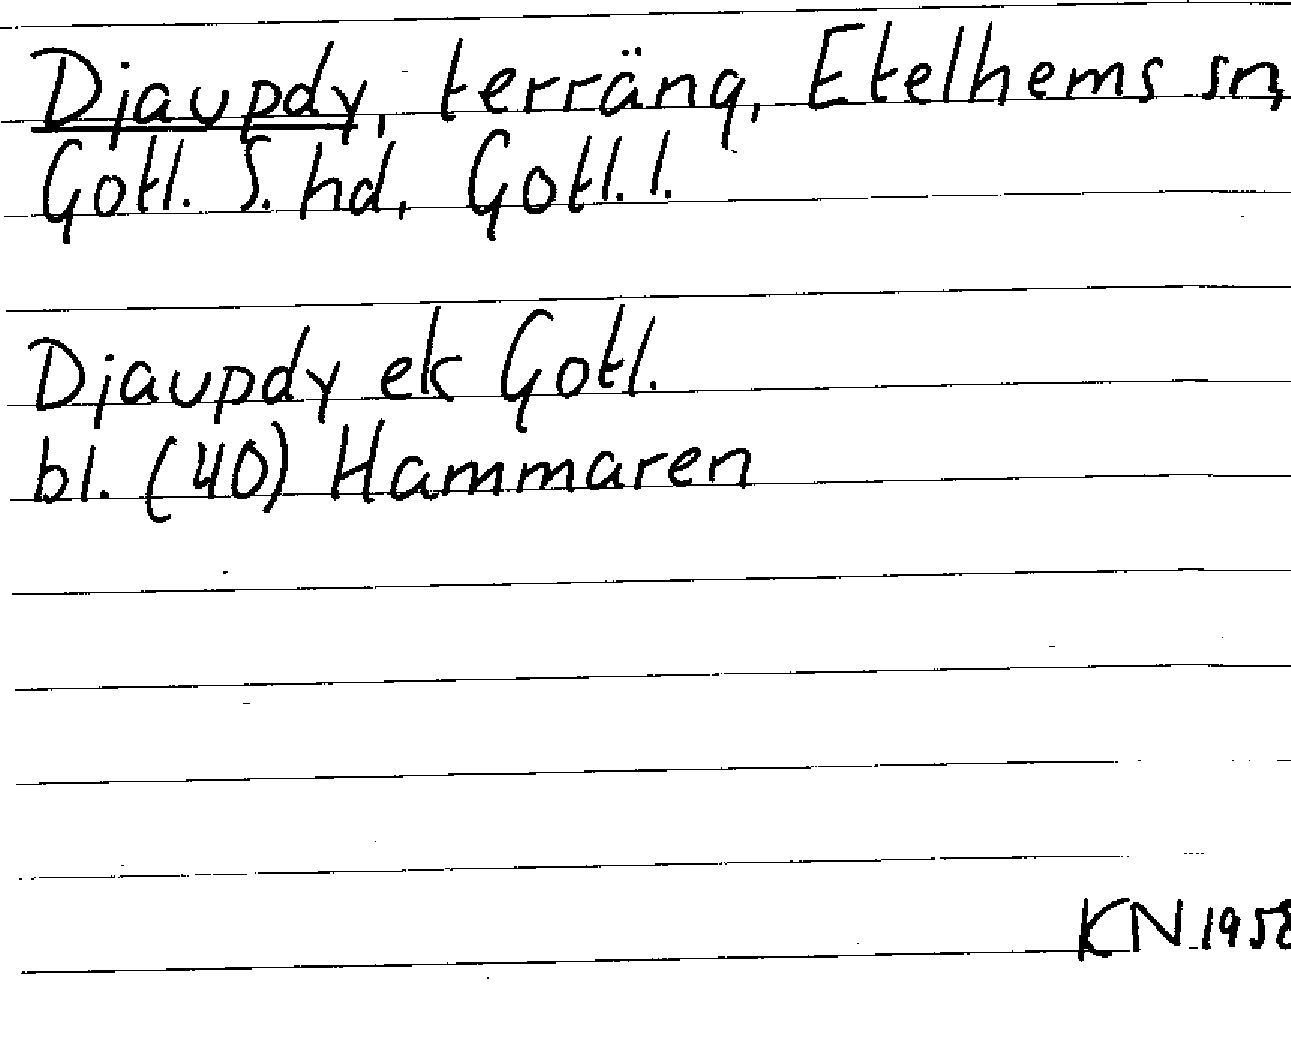 Djaupdy, terräng, Etelhems sn,
Gotl. S. hd, Gotl. l.
Djaupdy ek Gotl.
bl. (40) Hammaren
KN 1958